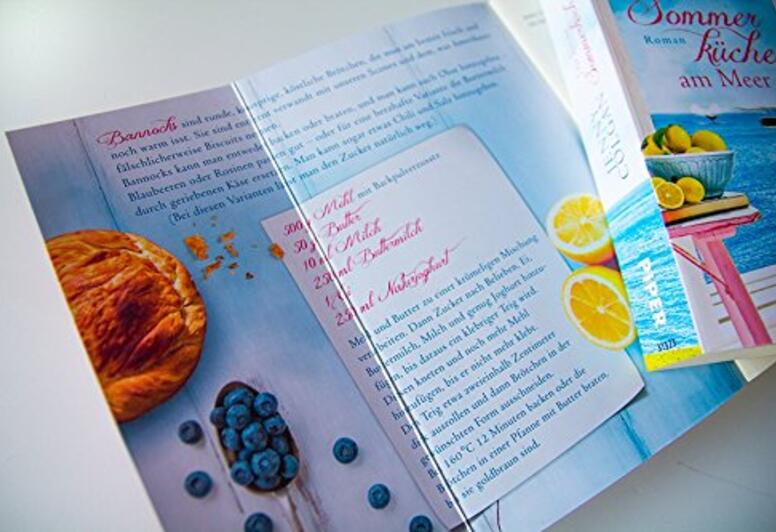 Bannocks sind runde, knusprige, köstliche Brötchen, die man am besten frisch und
noch warm isst. Sie sind eng verwandt mit unseren Scones und dem, was
fälschlicherweise Biscuits
Bannocks kann man entweder backen oder braten, und man kann auch Obst
Blaubeeren oder Rosinen gut – oder für eine herzhafte Variante die Buttermilch
durch geriebenen Käse ersetzen. Man kann sogar etwas Chili und Salz
(Bei diesen Varianten lässt man den Zucker natürlich weg.)
500 g Mehl mit Backpulverzusatz
50 g Butter
10 ml Milch
250 ml Buttermilch
1 Ei
250 ml Naturjoghurt
Mehl und Butter zu einer krümeligen Mischung
verarbeiten. Dann Zucker nach Belieben, Ei,
Buttermilch, Milch und genug Joghurt hinzu-
fügen, bis daraus ein klebriger Teig wird.
Diesen kneten und noch mehr Mehl
hinzufügen, bis er nicht mehr klebt.
Den Teig etwa zweieinhalb Zentimeter
dick ausrollen und dann Brötchen in der
gewünschten Form ausschneiden.
160 °C 12 Minuten backen oder die
Brötchen in einer Pfanne mit Butter braten,
bis sie goldbraun sind.
JENNY
COLGAN
PIPER
Sommer
Roman
küche
am Meer